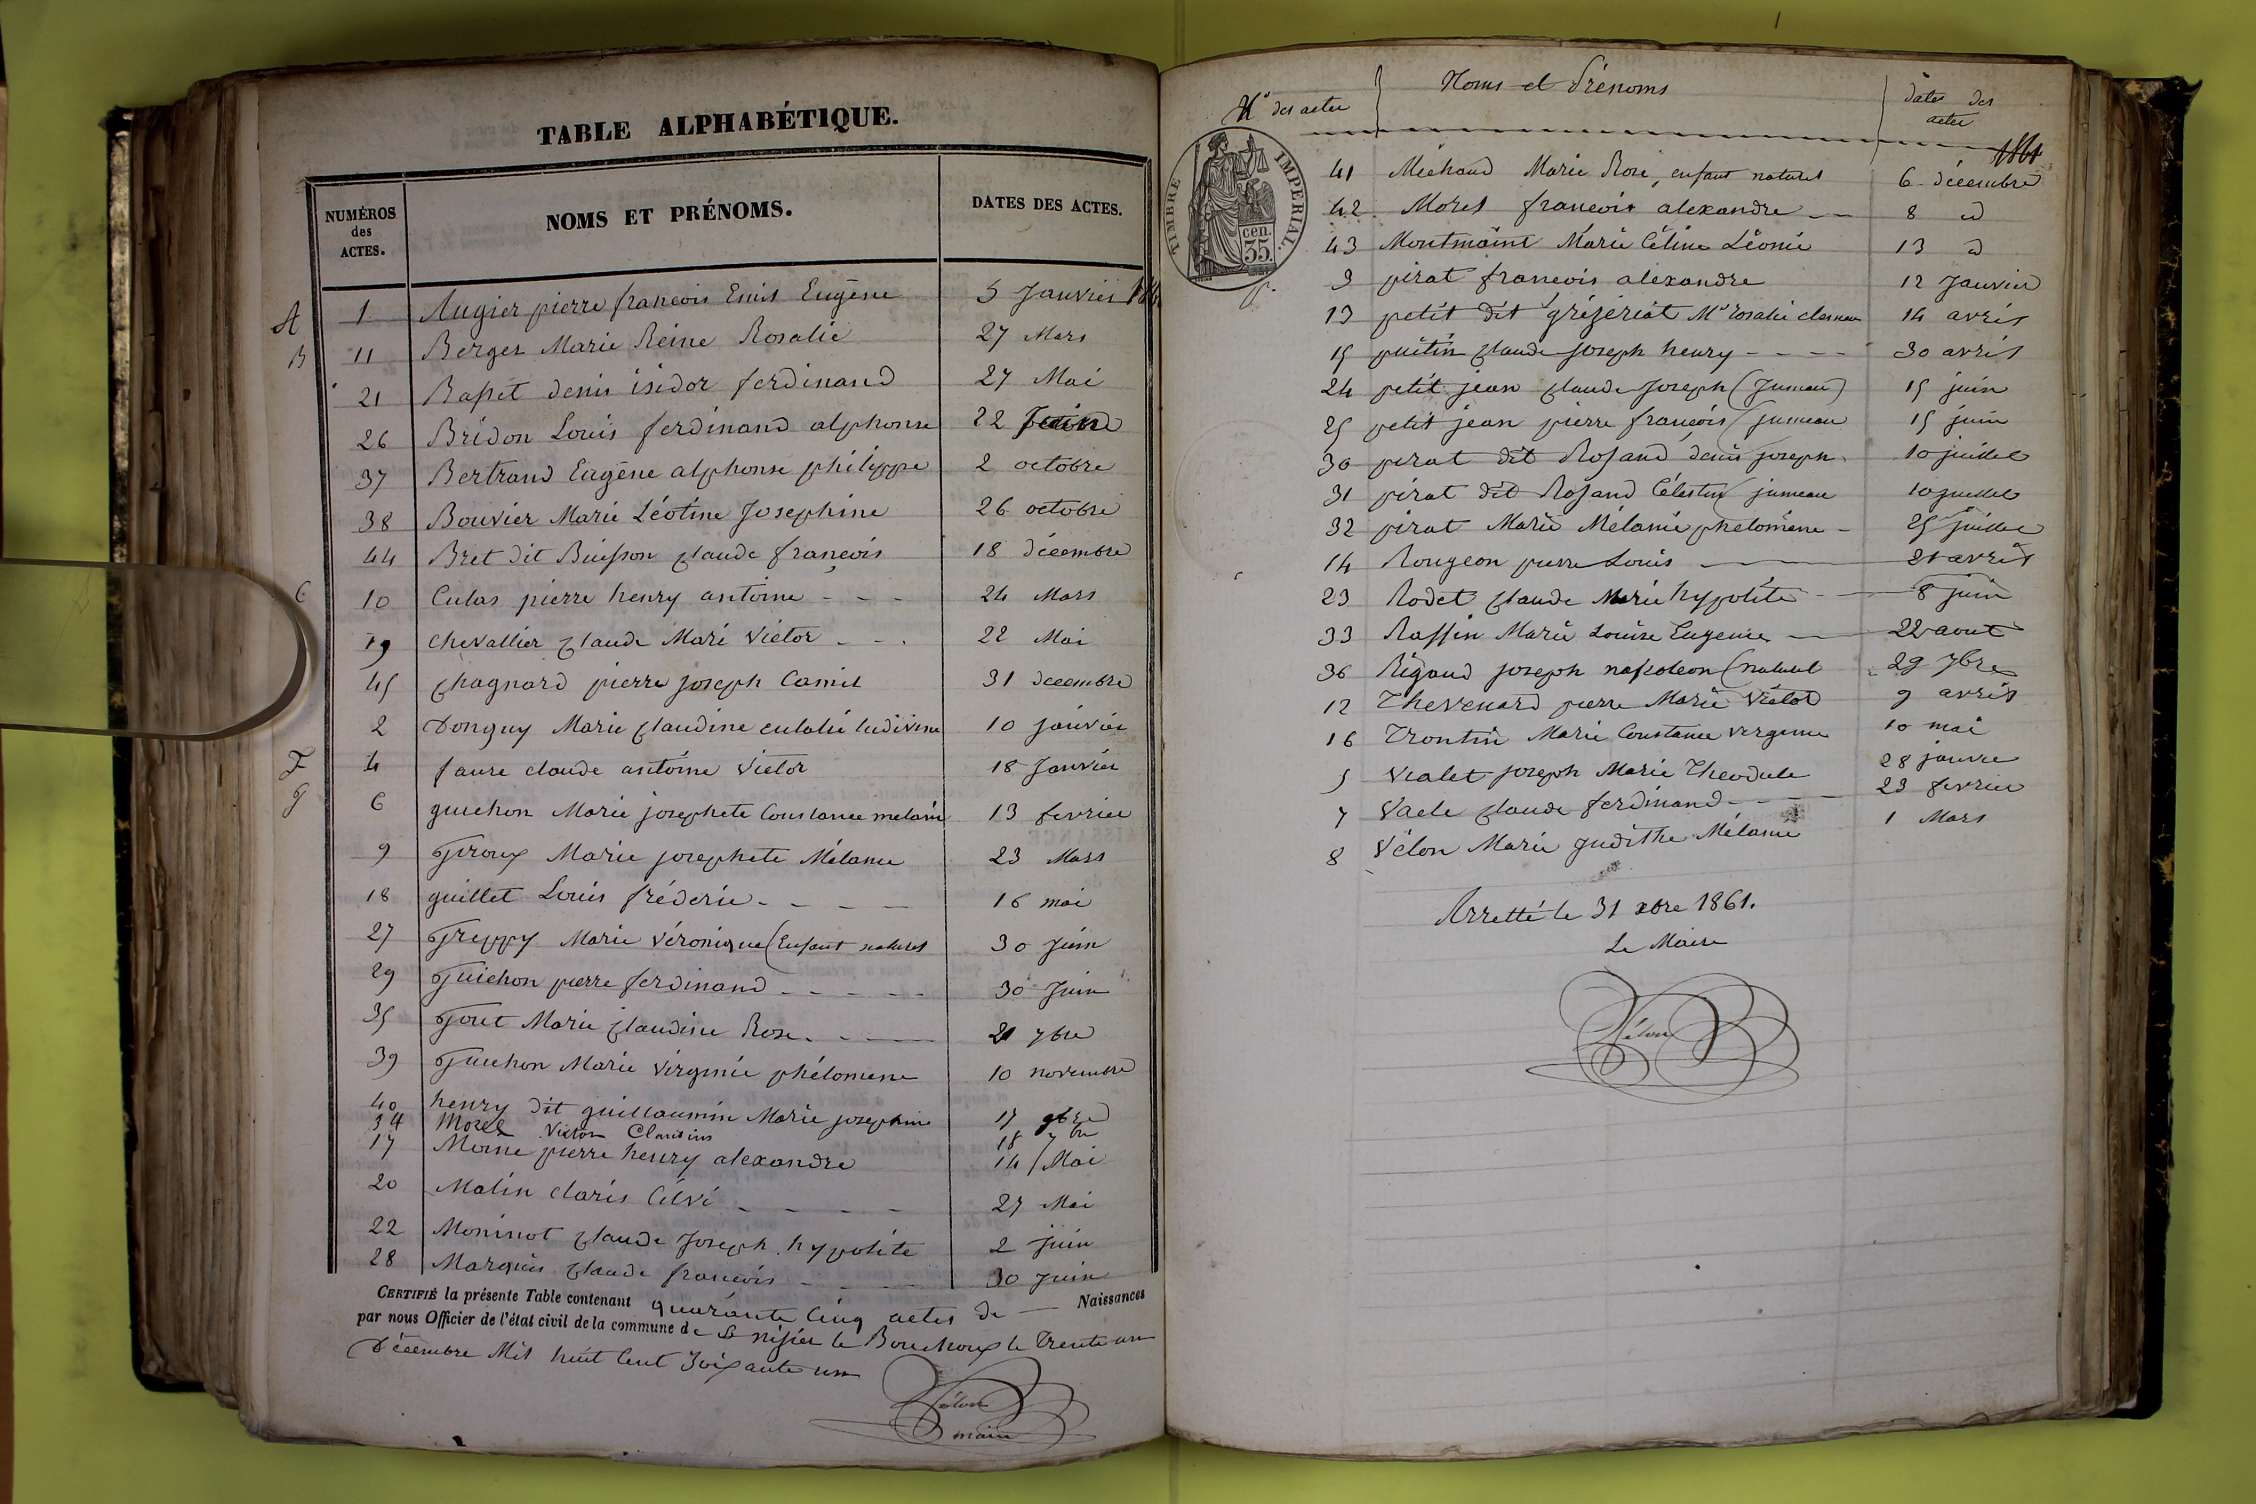 TABLE ALPHABÉTIQUE.
NUMÉROS des ACTES. NOMS ET PRÉNOMS. DATES DES ACTES.
A 1 Augier pierre francois Emil Eugène 5 Janvier
B 11 Berger Marie Reine Rosalie 27 Mars
21 denis isidor ferdinand 27 Mai
26 Bridon Louis ferdinand alphonse 22 Juin
37 Bertrand Eugène alphonse philippe 2 octobre
38 Bouvier Marie Léotine Josephine 26 octobre
44 Bret dit Buisson claude françois 18 décembre
C 10 Culas pierre henry antoine - - - 24 Mars
19 Chevallier claude Marie Victor - - . 22 Mai
45 chagnard pierre joseph Camil 31 decembre
2 Donguy Marie claudine eulalie ludivine 10 janvier
F 4 faure claude antoine Victor 18 Janvier
g 6 guichon Marie josephete Constance melanie 13 fevrier
9 Giroux Marie josephete Mélanie 23 Mars
18 guillet Louis fréderic - - - - 16 mai
27 Greppy Marie Véronique (Enfant naturel 30 Juin
29 Guichon pierre ferdinand - - - - - 30 Juin
35 Gout Marie claudine Rose - - — 21 7bre
39 Guichon Marie Virginie phélomene 10 novembre
40 henry dit guillaumin Marie josephine 17 9bre
34 Morel Victor 18 7bre
17 Moine pierre henry alexandre 14 Mai
20 Malin claris Cilvi - - - - 27 Mai
22 Moninot claude Joseph hypolite 2 juin
28 Marquis claude francois - - - - 30 Juin
CERTIFIÉ la présente Table contenant quarante Cinq actes de — Naissances
par nous Officier de l'état civil de la commune de St nizier le Bouchoux le Trente un
Décembre Mil huit Cent Soixante un
Vélon
maire
Nº des actes Noms et Prénoms dates des actes
1861
TIMBRE IMPÉRIAL.
35 cen.
41 Méchaud Marie Rose, enfant naturel 6 décembre
42 Morel francois alexandre — 8 d
43 Montmain Marie Céline Léonie 13 d
P. 3 pirat francois alexandre 12 Janvier
13 petit dit grézeriat Mie rosalie 14 avril
15 putin claude Joseph henry - - - - 30 avril
24 petit jean claude Joseph (Jumeau) 15 juin
25 petit jean pierre françois (jumeau 15 juin
30 pirat dit Rosand denis joseph 10 juillet
31 pirat dit Rosand Célestin (jumeau 10 juillet
32 pirat Marie Mélanie phelomène - 25 juillet
14 Rougeon pierre Louis — 21 avril
23 Rodet claude Marie hypolite - 8 juin
33 Raffin Marie Louise Eugenie — 22 aout
36 Rigaud joseph napoleon (naturel 29 7bre
12 Thevenard pierre Marie Victor 9 avril
16 Trontin Marie Constance vergenie 10 mai
5 Vialet joseph Marie Theodule 28 janvier
7 Vacle claude ferdinand - - - - 23 fevrier
8 Vélon Marie Judithe Mélanie 1 Mars
Arretté le 31 xbre 1861.
Le Maire
Vélon